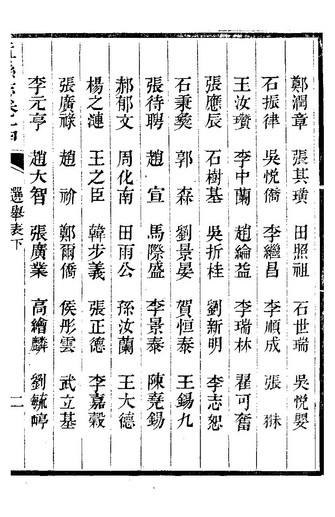 鄭潤章 張其璜 田照祖 石世瑞 吳悅嬰
石振律 吳悅僑 李繼昌 李順成 張
王汝瓚 李中蘭 趙綸益 李瑞林 翟可奮
張應辰 石樹基 吳折桂 劉新明 李志恕
石秉奘 郭森 劉景晏 賀恒泰 王錫九
張待聘 趙宣 馬際盛 李景泰 陳堯錫
郝郁文 周化南 田雨公 孫汝蘭 王大德
楊之漣 王之臣 韓步義 張正德 李嘉穀
張廣祿 趙 鄭爾僑 侯彤雲 武立基
李元亨 趙大智 張廣業 高繪麟 劉毓
選舉表下 二